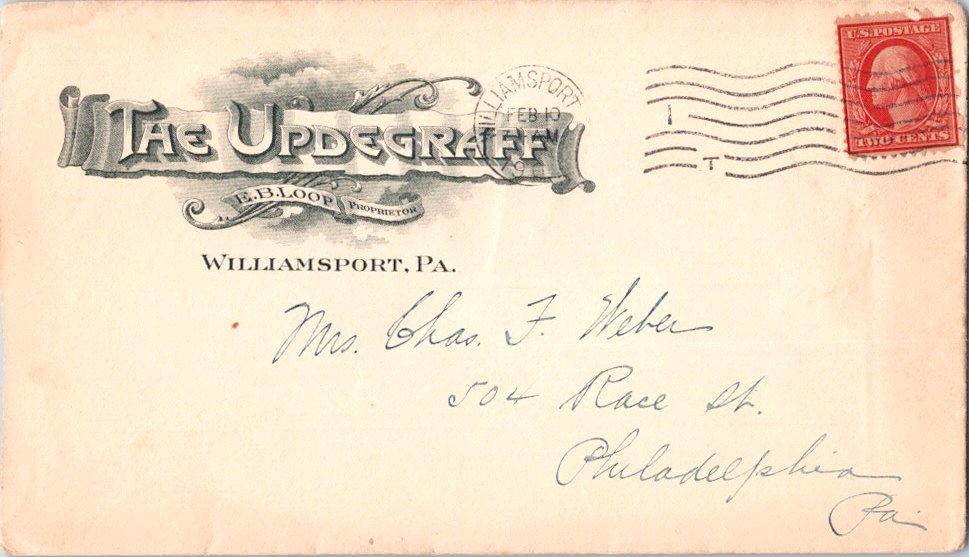 THE UPDEGRAFF
E.B.LOOP PROPRIETOR
WILLIAMSPORT, PA.
WILLIAMSPORT
FEB 10
U.S. POSTAGE
TWO CENTS
I
T
Mrs. Chas. F. Weber
504 Race St.
Philadelphia
Pa.